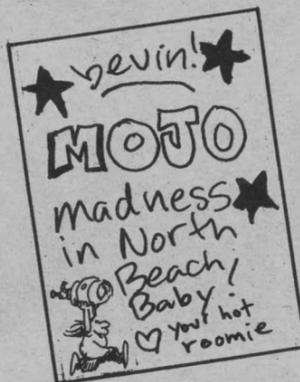 bevin!
MOJO
madness
in North
Beach,
Baby!
♡ your hot
roomie